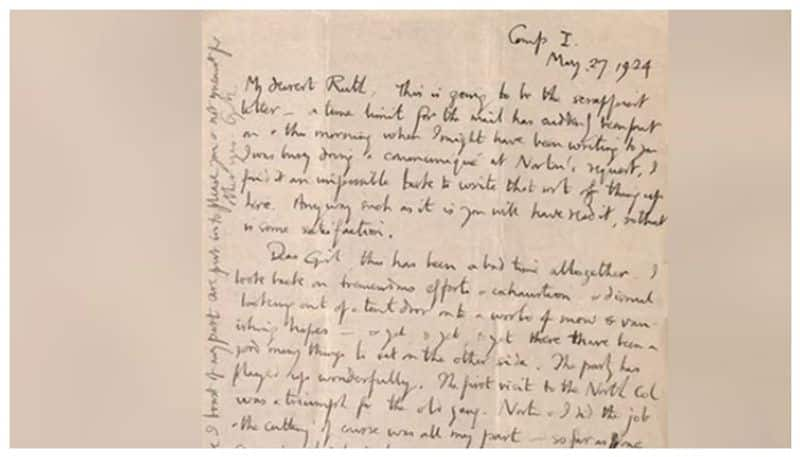 Camp I.
May. 27 1924
My dearest Ruth, This is going to be the scrappiest
letter – a time limit for the mail has suddenly been put
on & this morning when I might have been writing to you
I was busy doing a communiqué at Norton's request, I
find it an impossible task to write that sort of thing up
here. Anyway such as it is you will have read it, so that
is some satisfaction.
Dear Girl this has been a bad time altogether. I
look back on tremendous efforts & exhaustion & dismal
looking out of a tent door onto a world of snow & van-
ishing hopes – & yet, & yet, & yet there have been a
good many things to set on the other side. The party has
played up wonderfully. The first visit to the North Col
was a triumph for the old gang. Norton & I did the job
& the cutting of course was all my part – so far as
of my part are put in to please you & not meant for
other eyes